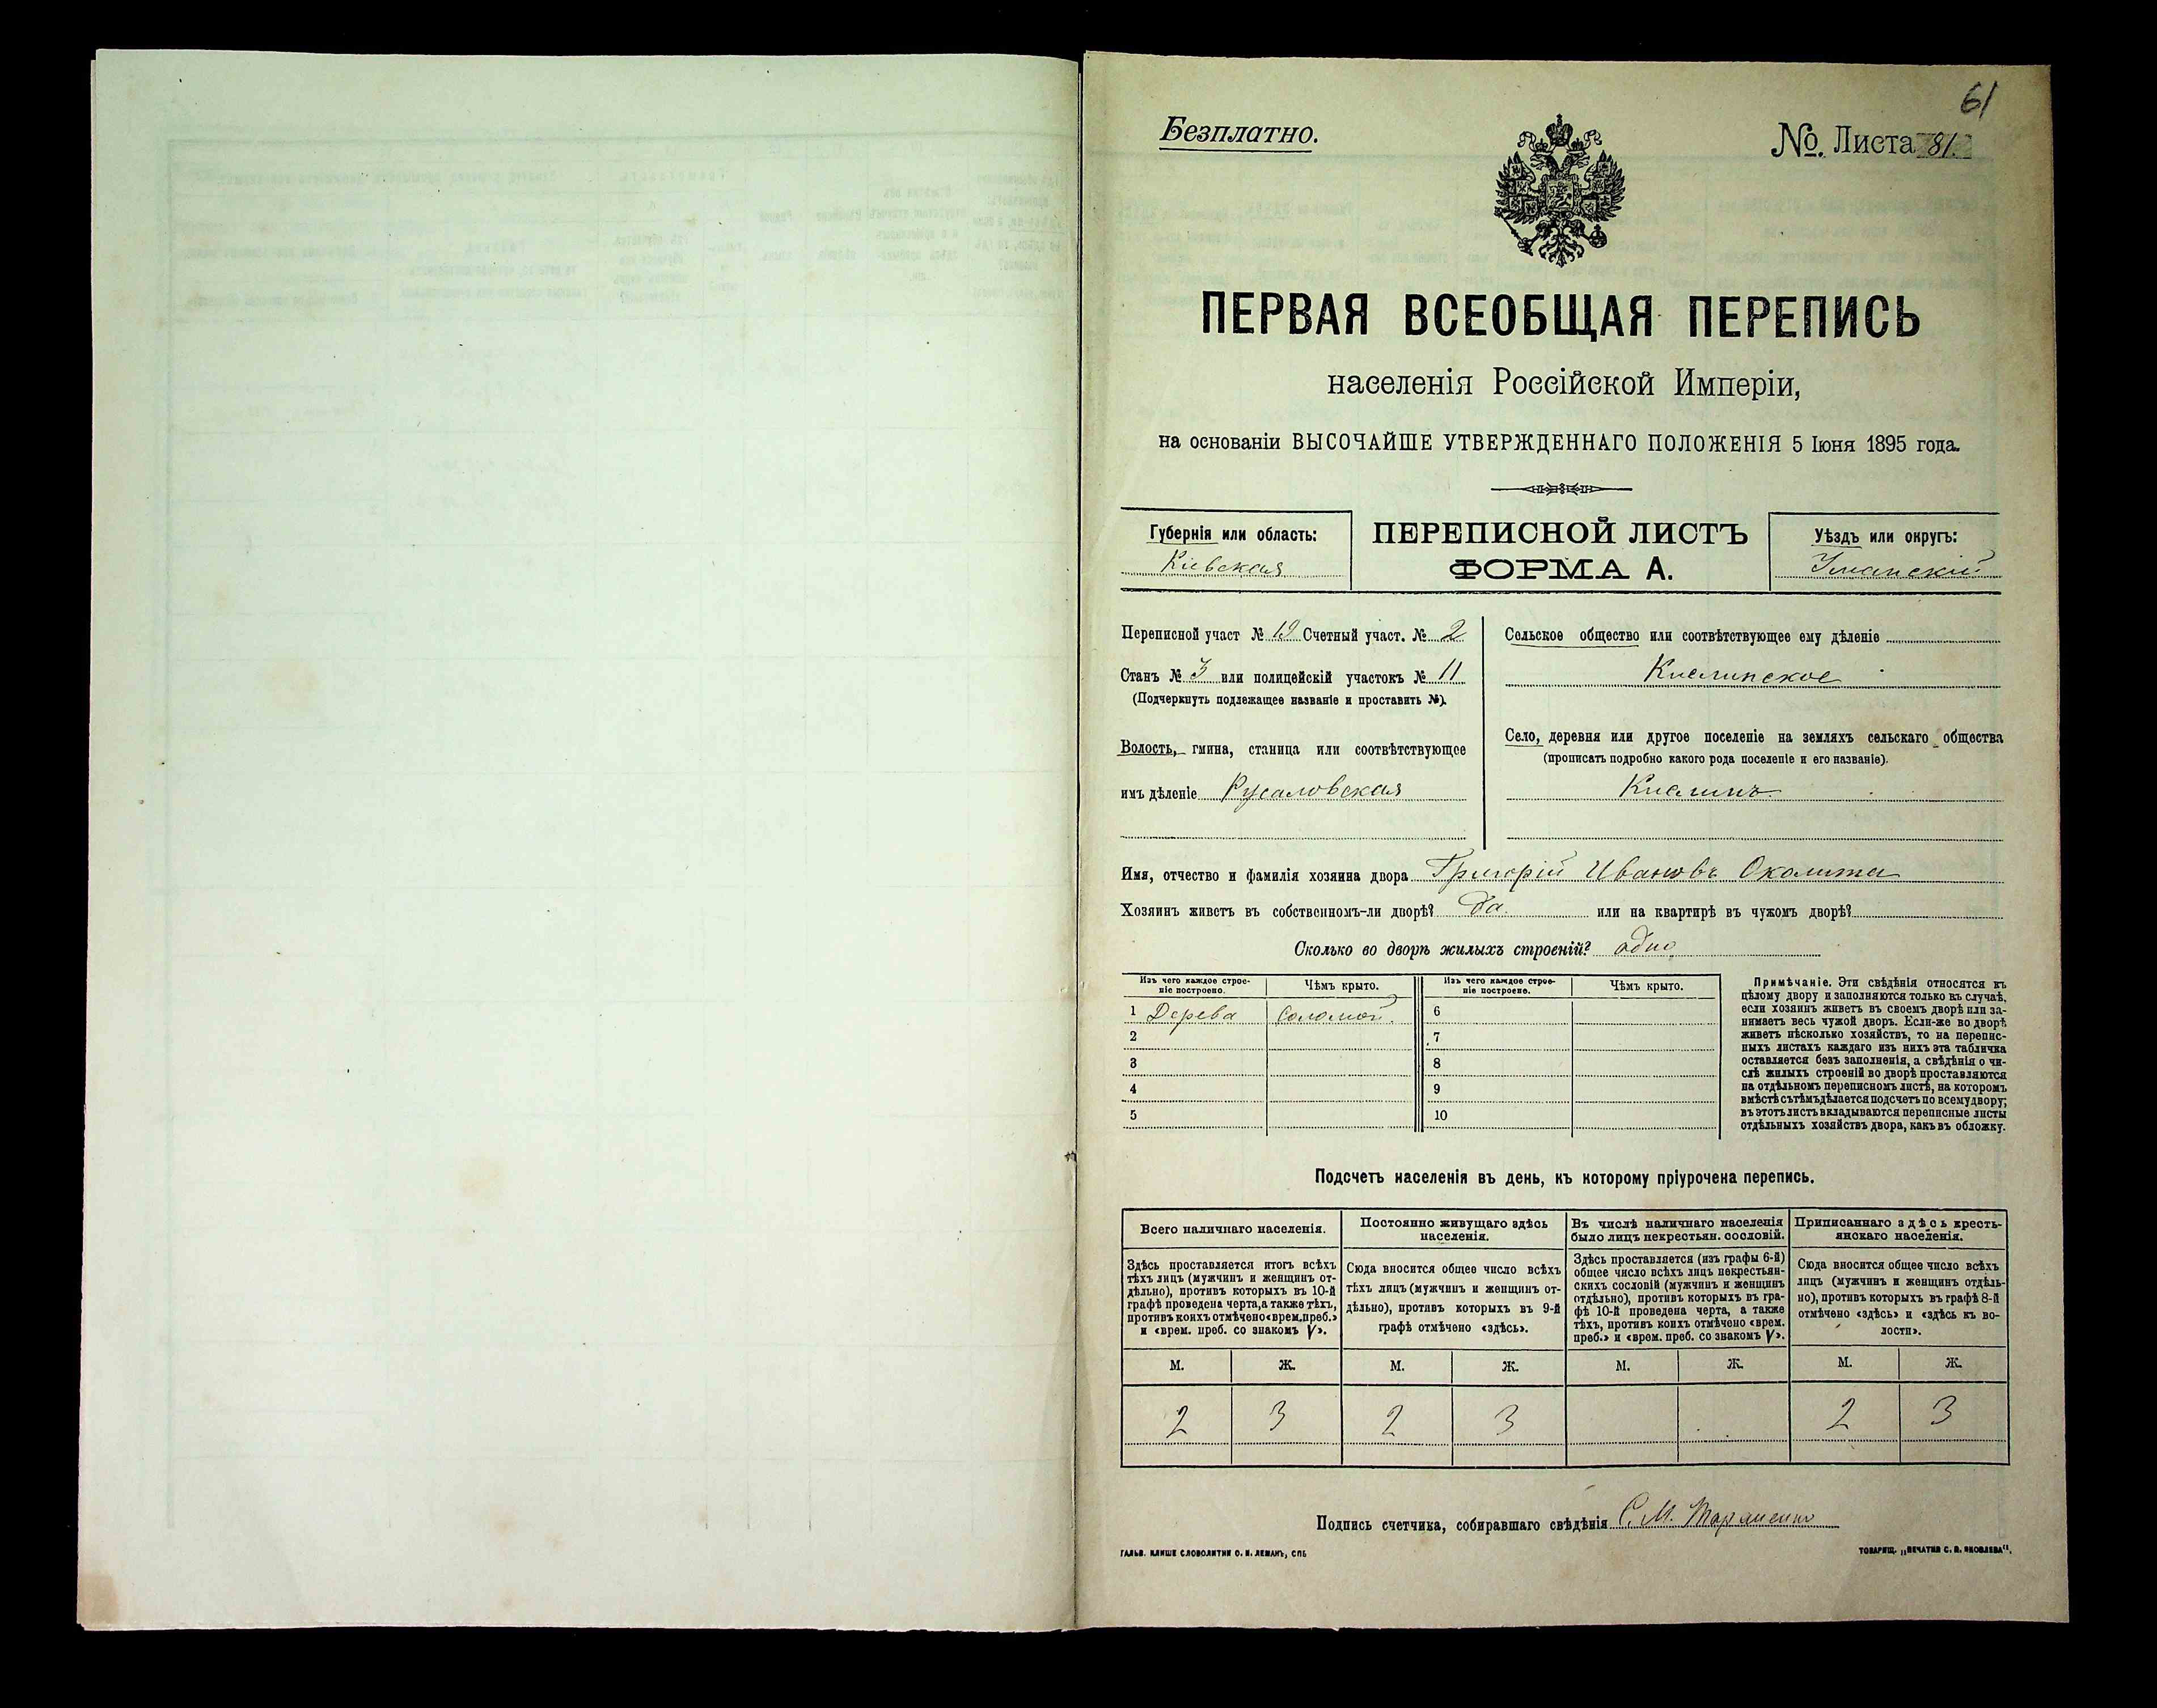 61
Безплатно.
№. Листа 81.
ПЕРВАЯ ВСЕОБЩАЯ ПЕРЕПИСЬ
населенія Россійской Имперіи,
на основаніи ВЫСОЧАЙШЕ УТВЕРЖДЕННАГО ПОЛОЖЕНІЯ 5 Іюня 1895 года.
Губернія или область:
Кіевская
ПЕРЕПИСНОЙ ЛИСТЪ
ФОРМА А.
Уѣздъ или округъ:
Уманскій
Переписной участ № 19 Счетный участ. № 2
Станъ № 3 или полицейскій участокъ № 11
(Подчеркнуть подлежащее названіе и проставить №).
Волость, гмина, станица или соотвѣтствующее
имъ дѣленіе Русаловская
Сельское общество или соотвѣтствующее ему дѣленіе
Кислинское
Село, деревня или другое поселеніе на земляхъ сельскаго общества
(прописать подробно какого рода поселеніе и его названіе).
Кислинъ
Имя, отчество и фамилія хозяина двора Григорій Ивановъ Околита
Хозяинъ живетъ въ собственномъ-ли дворѣ? Да. или на квартирѣ въ чужомъ дворѣ?
Сколько во дворѣ жилыхъ строеній? одно
Изъ чего каждое строе-
ніе построено.
Чѣмъ крыто.
Изъ чего каждое строе-
ніе построено.
Чѣмъ крыто.
1 Дерева Соломой. 6
2 7
3 8
4 9
5 10
Примѣчаніе. Эти свѣдѣнія относятся къ
цѣлому двору и заполняются только въ случаѣ,
если хозяинъ живетъ въ своемъ дворѣ или за-
нимаетъ весь чужой дворъ. Если-же во дворѣ
живетъ нѣсколько хозяйствъ, то на перепис-
ныхъ листахъ каждаго изъ нихъ эта табличка
оставляется безъ заполненія, а свѣдѣнія о чи-
слѣ жилыхъ строеній во дворѣ проставляются
на отдѣльномъ переписномъ листѣ, на которомъ
вмѣстѣ съ тѣмъ дѣлается подсчетъ по всему двору;
въ этотъ листъ вкладываются переписные листы
отдѣльныхъ хозяйствъ двора, какъ въ обложку.
Подсчетъ населенія въ день, къ которому пріурочена перепись.
Всего наличнаго населенія.
Постоянно живущаго здѣсь
населенія.
Въ числѣ наличнаго населенія
было лицъ некрестьян. сословій.
Приписаннаго здѣсь кресть-
янскаго населенія.
Здѣсь проставляется итогъ всѣхъ
тѣхъ лицъ (мужчинъ и женщинъ от-
дѣльно), противъ которыхъ въ 10-й
графѣ проведена черта, а также тѣхъ,
противъ коихъ отмѣчено «врем. преб.»
и «врем. преб. со знакомъ V».
Сюда вносится общее число всѣхъ
тѣхъ лицъ (мужчинъ и женщинъ от-
дѣльно), противъ которыхъ въ 9-й
графѣ отмѣчено «здѣсь».
Здѣсь проставляется (изъ графы 6-й)
общее число всѣхъ лицъ некрестьян-
скихъ сословій (мужчинъ и женщинъ
отдѣльно), противъ которыхъ въ гра-
фѣ 10-й проведена черта, а также
тѣхъ, противъ коихъ отмѣчено «врем.
преб.» и «врем. преб. со знакомъ V».
Сюда вносится общее число всѣхъ
лицъ (мужчинъ и женщинъ отдѣль-
но), противъ которыхъ въ графѣ 8-й
отмѣчено «здѣсь» и «здѣсь къ во-
лости».
М. Ж. М. Ж. М. Ж. М. Ж.
2 3 2 3 2 3
Подпись счетчика, собиравшаго свѣдѣнія С. М.
ГАЛЬВ. КЛИШЕ СЛОВОЛИТНИ О. И. ЛЕМАНЪ, СПБ
ТОВАРИЩ. „ПЕЧАТНЯ С. П. ЯКОВЛЕВА".